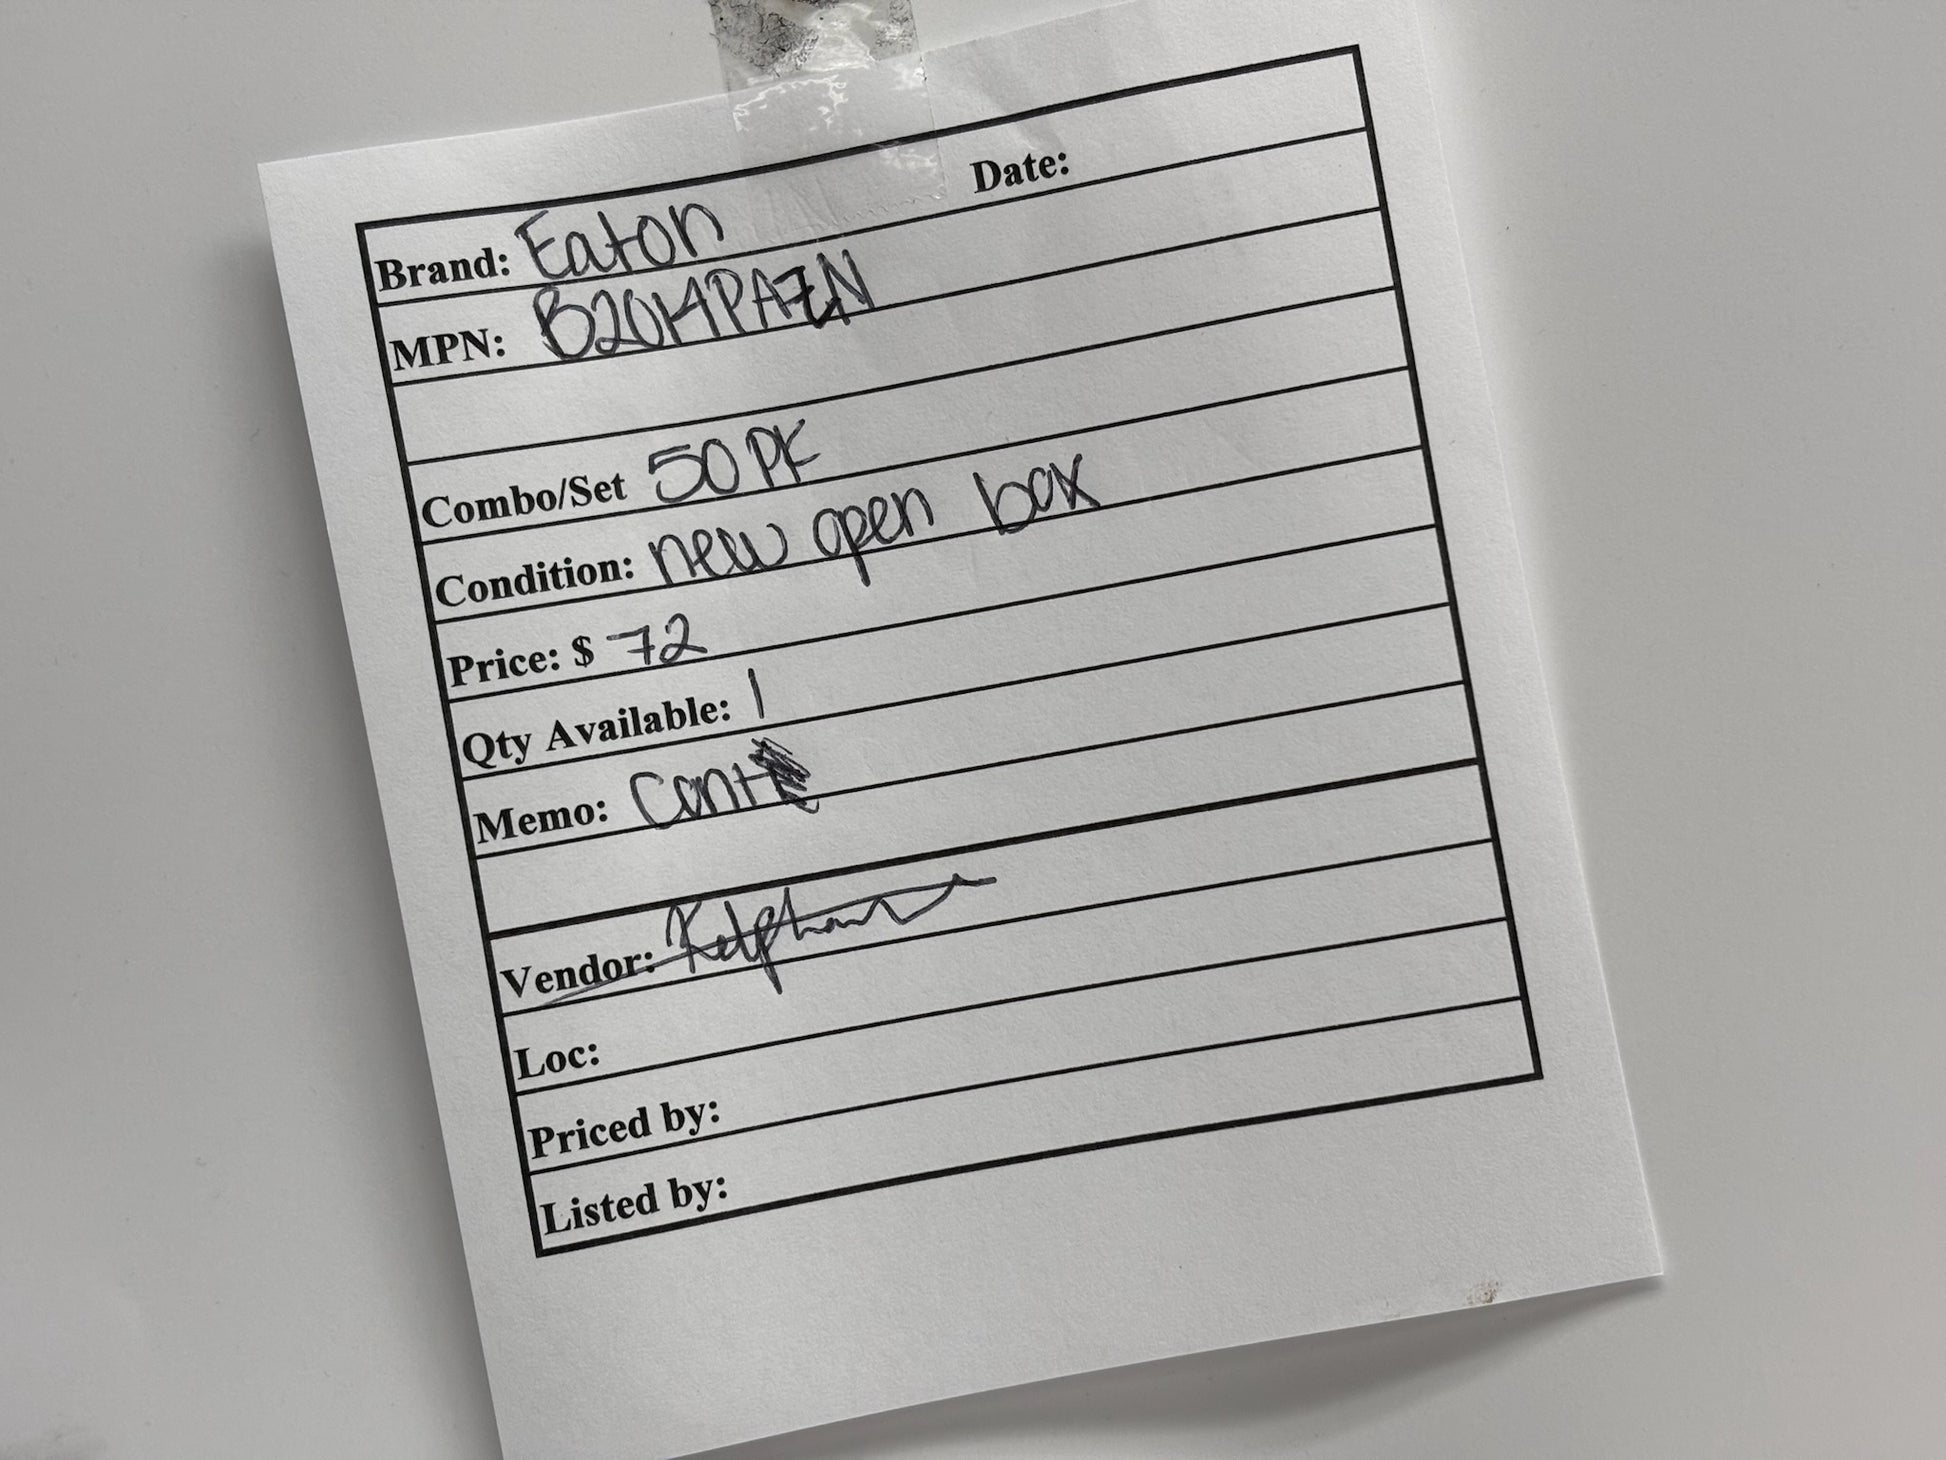 Date:
Brand: Eaton
MPN: B20HPAZN
Combo/Set 50 PK
Condition: new open box
Price: $ 72
Qty Available: 1
Memo: Cont
Vendor:
Loc:
Priced by:
Listed by: